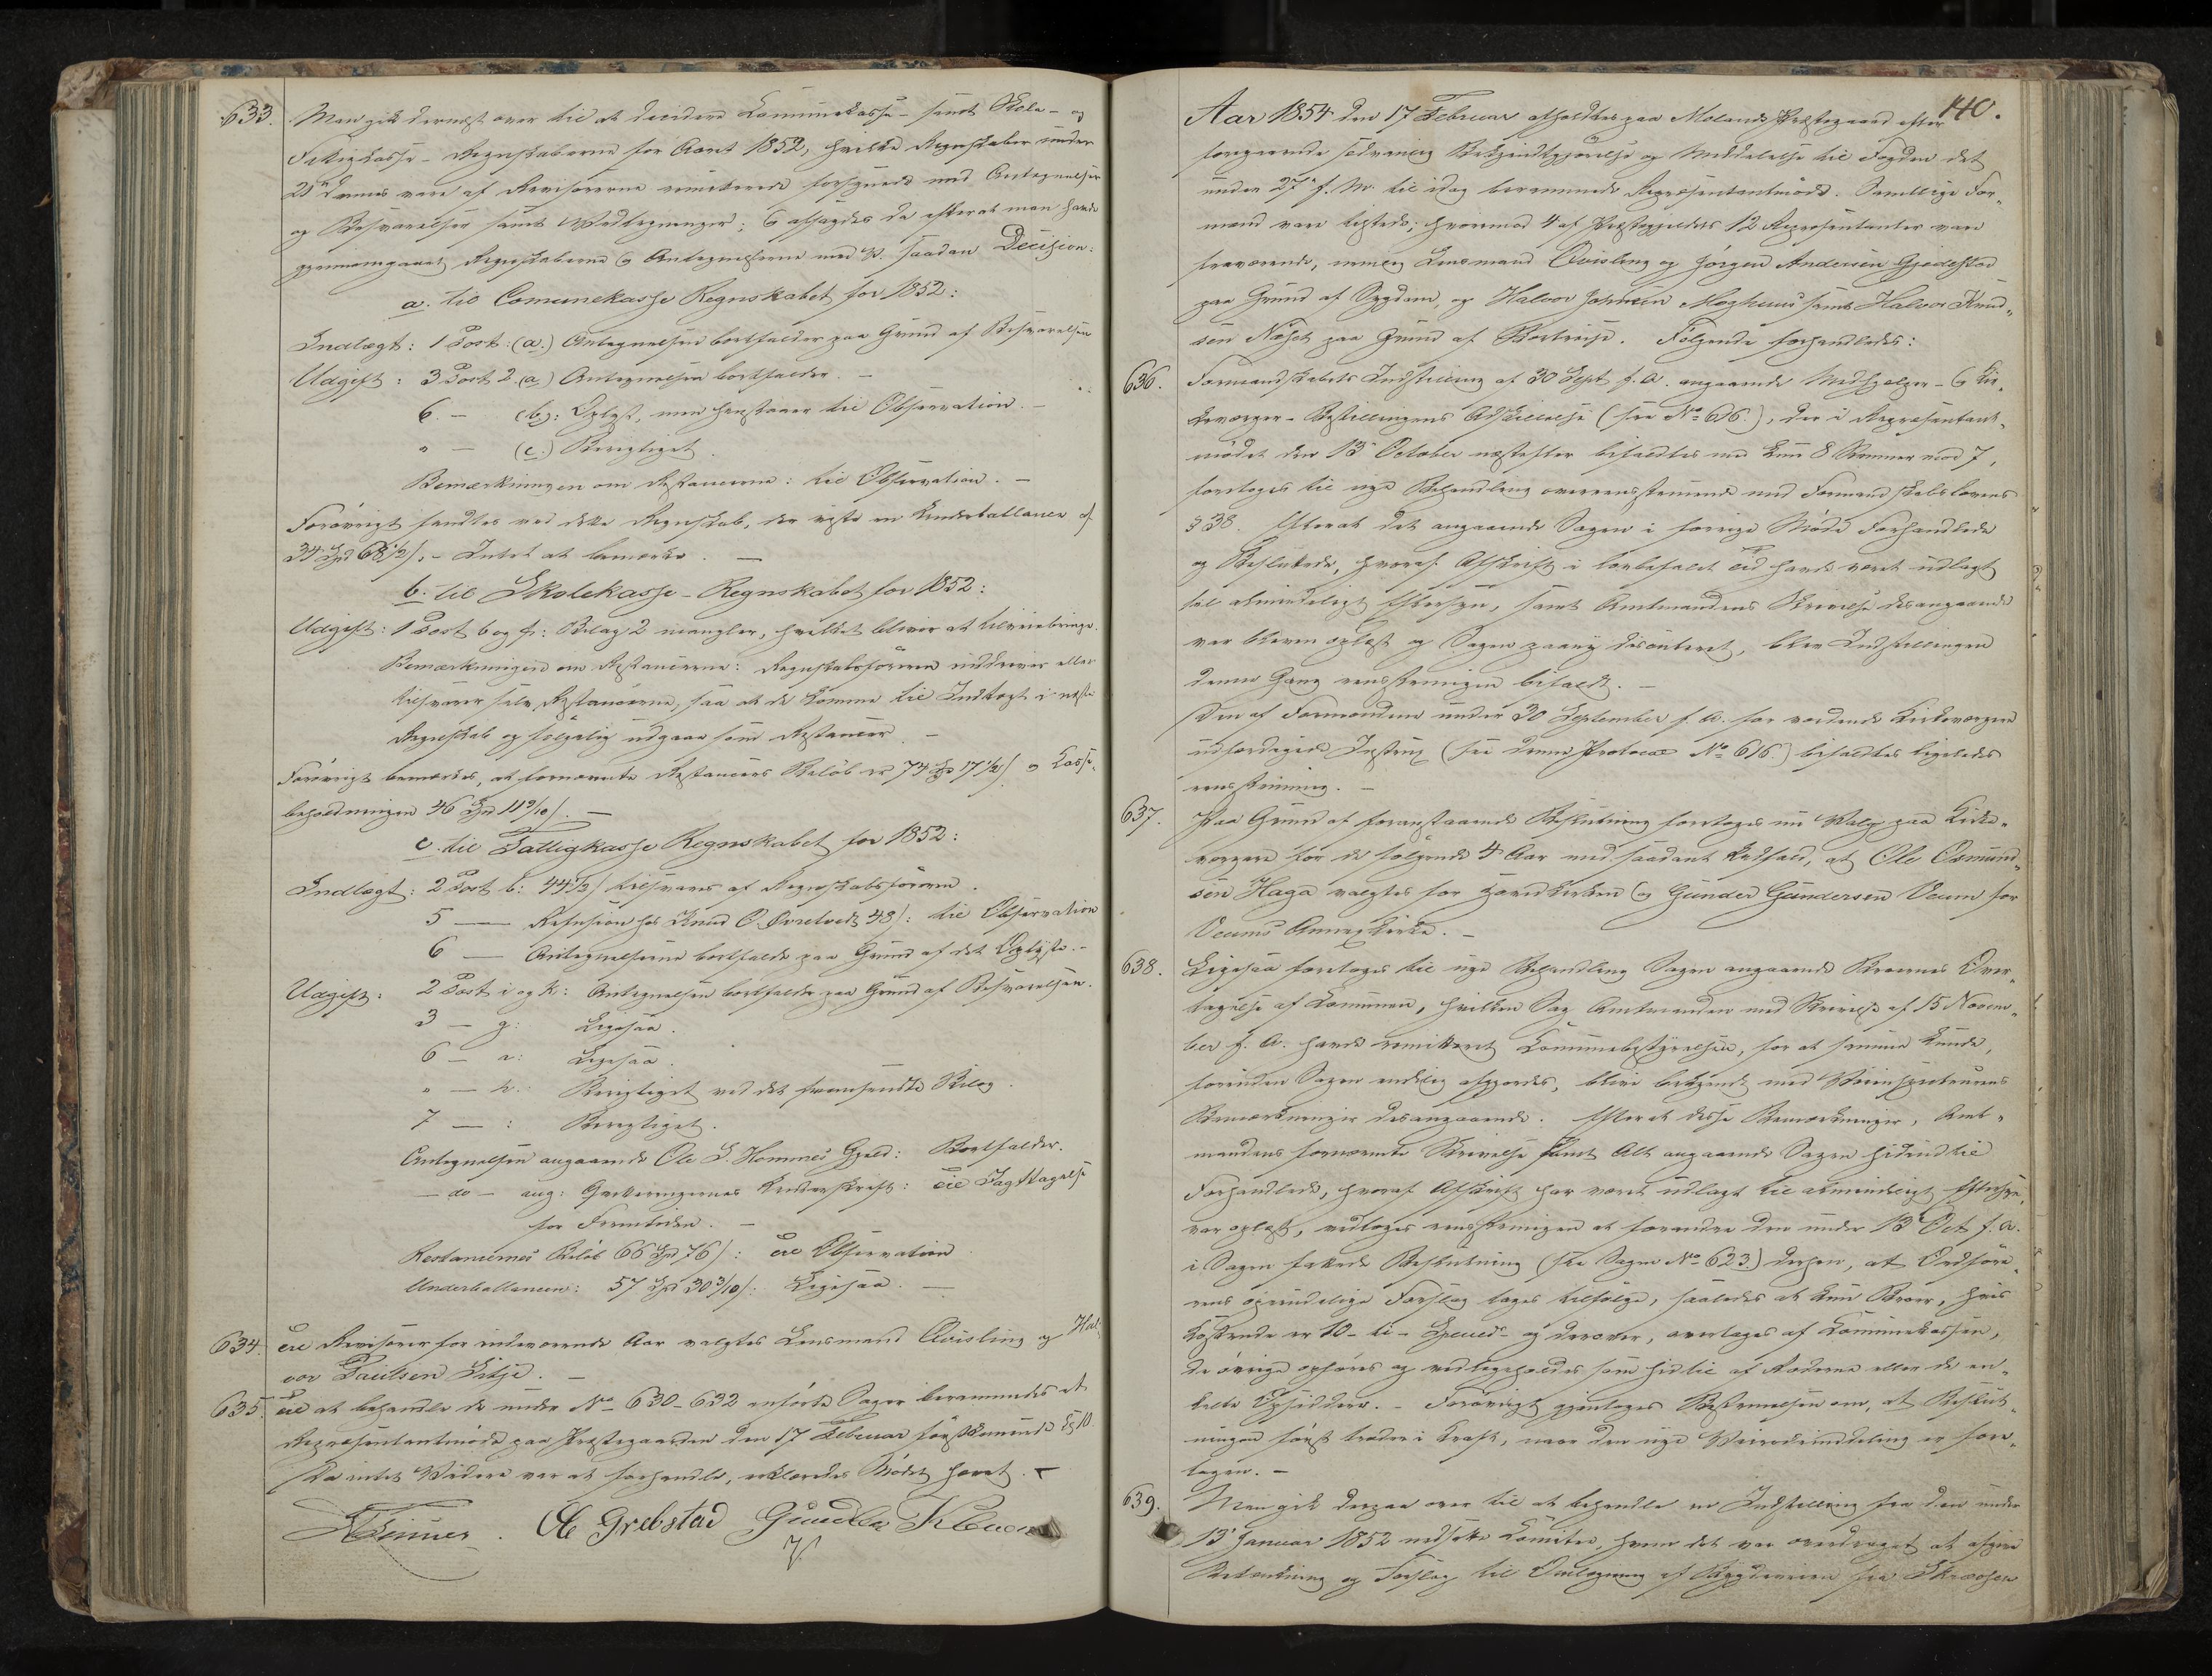 633. Man gik dernæst over til at decidere Communekasse- samt Skole- og
Fattigkasse-Regnskaberne for Aaret 1852, hvilke Regnskaber under
21de dennes vare af Revisorerne remitterede forsynede med Antegnelser
og Besvarelser samt Vedtegninger; & afsagdes da efterat man havde
gjennemgaaet Regnskaberne & Antegnelserne med V. saadan Decision:
a. til Comunekasse Regnskabet for 1852:
Indtægt: 1 Post: (a.) Antegnelsen bortfalder paa Grund af Besvarelsen
Udgift: 3 Post 2. (a) Antegnelsen bortfalder. –
6. – (b): Oplyst, men henstaaer til Observation. –
" – (c.) Berigtiget.
Bemærkningen om Restancerne: til Observation. –
Forøvrigt fandtes ved dette Regnskab, der viste en Underballance af
34 Spd 68 1/2 /, – Intet at bemærke. –
b. til Skolekasse-Regnskabet for 1852:
Udgift: 1 Post b og f: Bilag 2 mangler, hvilket bliver at tilveiebringe.
Bemærkningen om Restancerne: Regnskabsføreren inddriver eller
tilsvarer selv Restancerne, saa at de komme til Indtægt i næste
Regnskab og følgelig udgaar som Restancer. –
Forøvrigt bemærkes, at fornævnte Restancers Beløb er 74 Spd 17 1/2 / & Kasse-
beholdningen 46 Spd 11 9/10 /. –
c. til Fattigkasse Regnskabet for 1852:
Indtægt: 2 Post b: 44 1/2 / tilsvares af Regnskabsføreren.
5 — Refusion hos Knud O. Øvretvedt 48 /: til Observation
6 — Antegnelserne bortfalde paa Grund af det Oplyste. –
Udgift: 2 Post i og k: Antegnelsen bortfalder paa Grund af Besvarelsen.
3 – g: Ligesaa.
6 – a: Ligesaa.
" – h: Berigtiget ved det fremsendte Bilag.
7 — : Berigtiget.
Antegnelsen angaaende Ole S. Hommes Gjeld: Bortfalder.
– do – ang: Qvitteringernes Underskrift: til Iagttagelse
for Fremtiden. –
Restancernes Beløb 66 Spd 76 /: til Observation
Underballancen: 57 Spd 30 3/10 /: Ligesaa. –
634. Til Revisorer for indeværende Aar valgtes Lensmand Qvisling og Hal-
vor Paulsen Litje. –
635. Til at behandle de under No 630–632 anførte Sager berammedes et
Repræsentantmøde paa Præstegaarden den 17 Februar førstkommende Kl 10.
Da intet Videre var at forhandle, erklæredes Mødet hævet. –
Ole Grebstad Gunder
140.
Aar 1854 den 17 Februar afholdtes paa Molands Præstegaard efter
foregaaende sædvanlig Bekjendtgjørelse og Meddelelse til Fogden det
under 27 f. M. til idag berammede Repræsentantmøde. Samtlige For-
mænd vare tilstede; hvorimod 4 af Præstegjeldets 12 Repræsentanter vare
fraværende, nemlig Lensmand Qvisling og Jørgen Andersen Gjedestad
paa Grund af Sygdom, og Halvor Johnsen Moghuus samt Halvor Knud-
sen Næset paa Grund af Bortreise. Følgende forhandledes:
636. Formandskabets Indstilling af 30 Sept. f. A. angaaende Medhjelper- & Kir-
keværger-Bestillingens Adskillelse (see No 616.), der i Repræsentant-
mødet den 13 October næstefter bifaldtes med kun 8 Stemmer mod 7,
foretoges til nye Behandling overensstemmende med Formandskabslovens
§ 38. Efterat det angaaende Sagen i forrige Møde Forhandlede
og Besluttede, hvoraf Afskrift i lovbefalet Tid havde været udlagt
til almindeligt Eftersyn, samt Amtmandens Skrivelse desangaaende
var bleven oplæst og Sagen paany discuteret, blev Indstillingen
denne Gang eenstemmigen bifaldt. –
Den af Formændene under 30 September f. A. for vordende Kirkeværgere
udfærdigede Instrux (see denne Protocol No 616.) bifaldtes ligeledes
eenstemmig. –
637. Paa Grund af foranstaaende Beslutning foretoges nu Valg paa Kirke-
værgere for de følgende 4 Aar med saadant Udfald, at Ole Osmund-
sen Haga valgtes for Hovedkirken & Gunder Gundersen Veum for
Veums Annexkirke. –
638. Ligesaa foretoges til nye Behandling Sagen angaaende Broernes Over-
tagelse af Communen, hvilken Sag Amtmanden med Skrivelse af 15 Novem-
ber f. A. havde remitteret Communebestyrelsen, for at samme kunde,
forinden Sagen endelig afgjordes, blive bekjendt med Veiinspecteurens
Bemærkninger desangaaende. Efterat disse Bemærkninger, Amt-
mandens fornævnte Skrivelse samt Alt angaaende Sagen hidindtil
Forhandlede, hvoraf Afskrift har været udlagt til almindeligt Eftersyn,
var oplæst, vedtoges eenstemmigen at forandre den under 13 Oct f. A.
i Sagen fattede Beslutning (see Sagen No 623.) derhen, at Ordføre-
rens oprindelige Forslag tages tilfølge, saaledes at kun Broer, hvis
Kostende er 10 – ti – Specied. og derover, overtages af Communekassen,
de øvrige opføres og vedligeholdes som hidtil af Roderne eller de en-
kelte Opsiddere. – Forøvrigt gjentoges Bestemmelsen om, at Beslut-
ningen først træder i Kraft, naar den nye Veirodeinddeling er fore-
tagen. –
639. Man gik derpaa over til at behandle en Indstilling fra den under
13 Januar 1852 nedsatte Comitee, hvem det var overdraget at afgive
Betænkning og Forslag til Omlægning af Bygdeveien fra